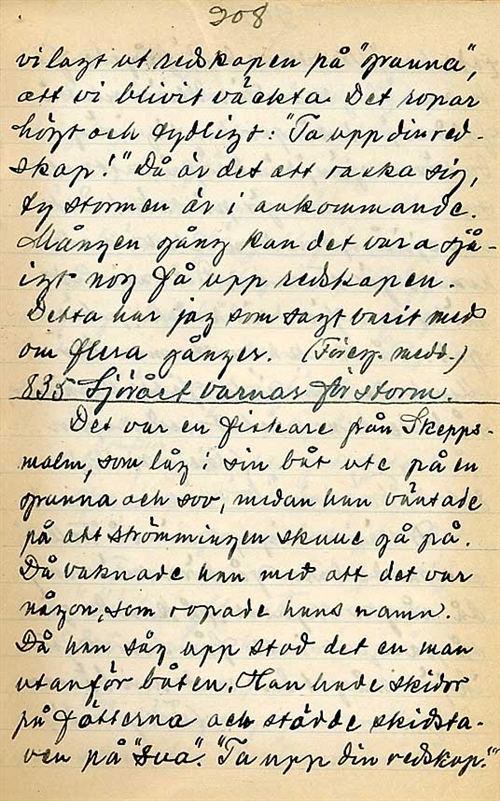 208
vi lagt ut redskapen på "grunna",
att vi blivit väckta. Det ropar
högt och tydligt: "Ta upp din red-
skap!" Då är det att raska sig,
ty stormen är i ankommande.
Mången gång kan det vara sjå-
igt nog få upp redskapen.
Detta har jag som sagt varit med
om flera gånger. (Föreg. medd.)
835 Sjörået varnar för storm.
Det var en fiskare från Skepps-
malm, som låg i sin båt ute på en
grunna och sov, medan han väntade
på att strömmingen skulle gå på.
Då vaknade han med att det var
någon, som ropade hans namn.
Då han såg upp stod det en man
utanför båten. Han hade skidor
på fötterna och stödde skidsta-
ven på "sva". "Ta upp din redskap!"